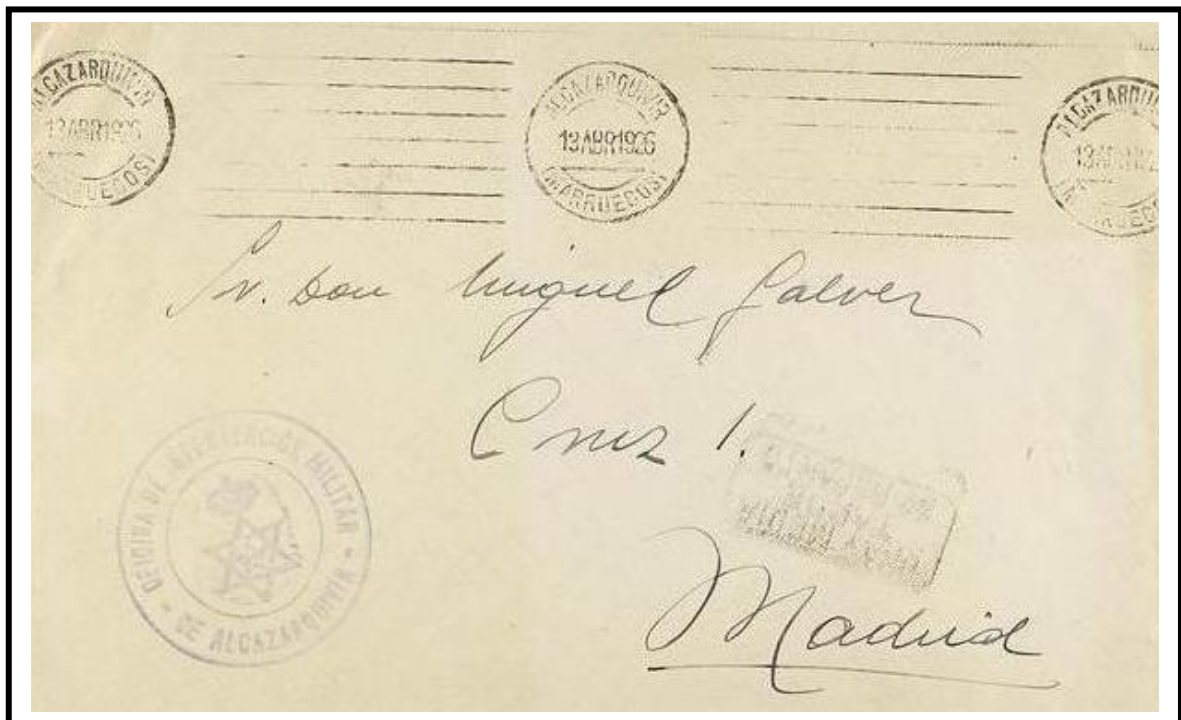 ALCAZARQUIVIR
13 ABR 1926
(MARRUECOS)
ALCAZARQUIVIR
13 ABR 1926
(MARRUECOS)
ALCAZARQUIVIR
13 ABR
(MARRUECOS)
Sr. Don Miguel Galvez
Cruz 1.
OFICINA DE INTERVENCIÓN MILITAR
- DE ALCAZARQUIVIR -
Madrid